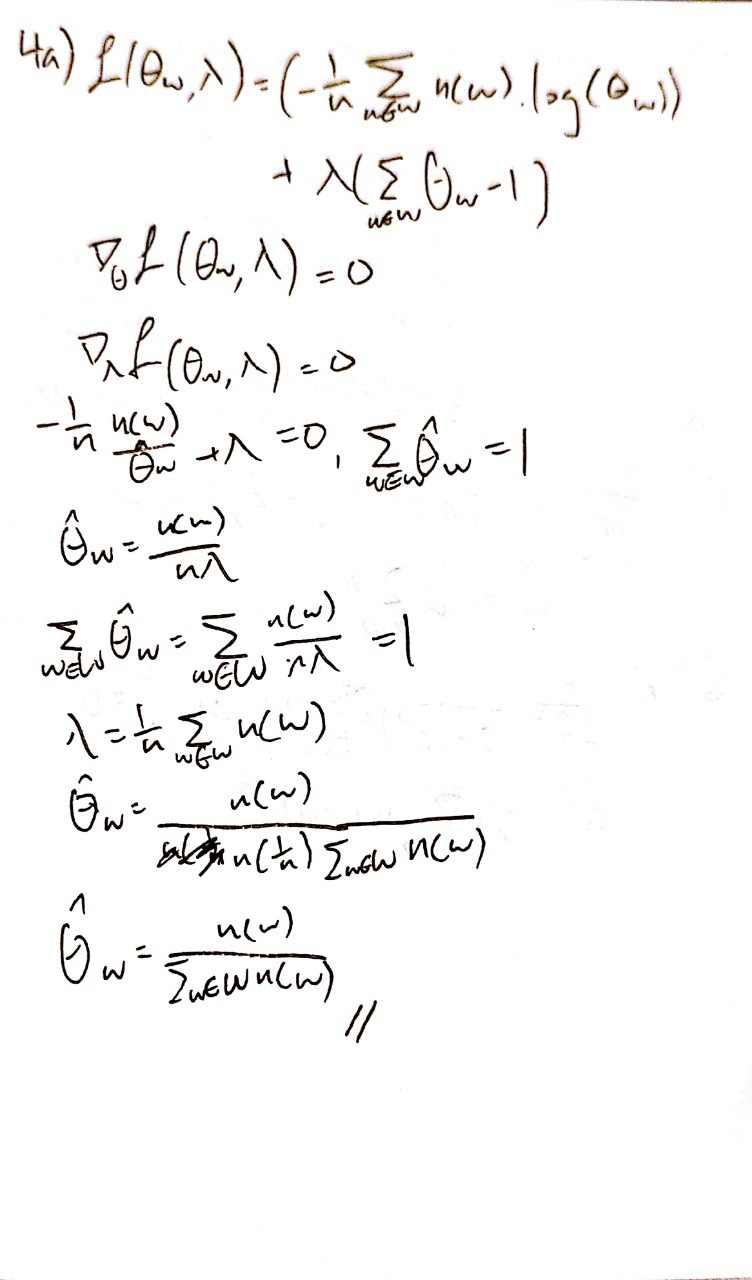 4a) L(θ_w, λ) = (-1/n Σ_{w∈W} n(w) · log(θ_w))
+ λ(Σ_{w∈W} θ_w - 1)
∇_θ L(θ_w, λ) = 0
∇_λ L(θ_w, λ) = 0
-1/n n(w)/θ̂_w + λ = 0, Σ_{w∈W} θ̂_w = 1
θ̂_w = n(w)/nλ
Σ_{w∈W} θ̂_w = Σ_{w∈W} n(w)/nλ = 1
λ = 1/n Σ_{w∈W} n(w)
θ̂_w = n(w)/n(1/n) Σ_{w∈W} n(w)
θ̂_w = n(w)/Σ_{w∈W} n(w) //